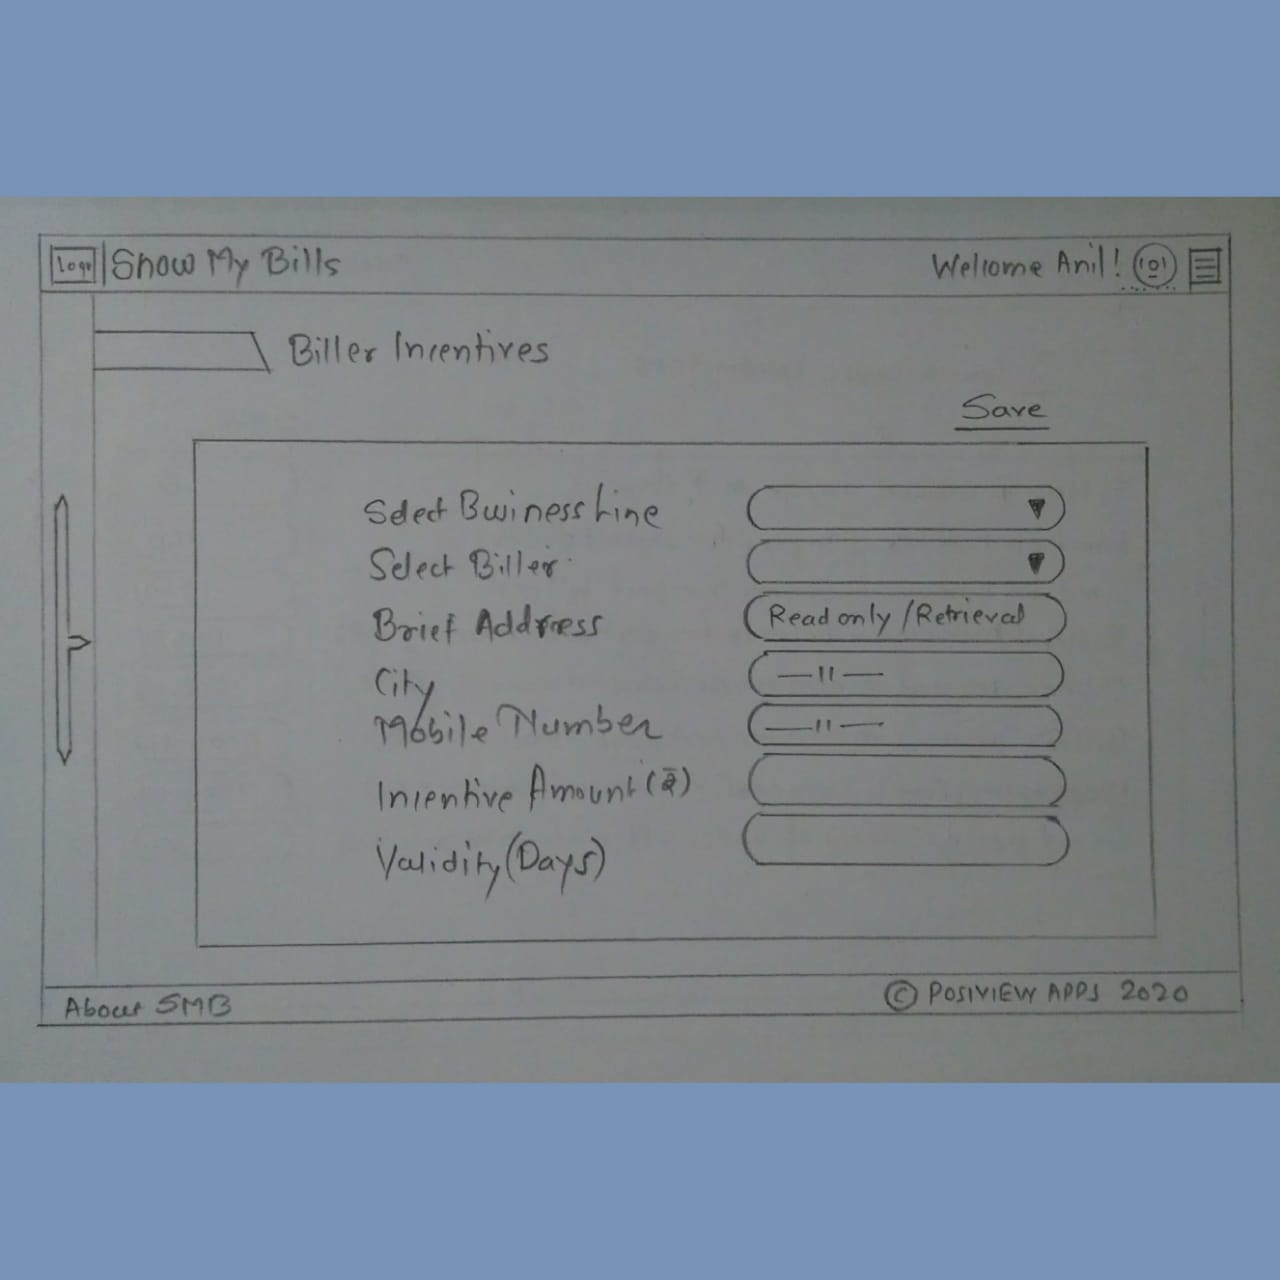 Logo Show My Bills Welcome Anil!
Biller Incentives
Save
Select Business Line
Select Biller
Brief Address Read only / Retrieval
City —〃—
Mobile Number —〃—
Incentive Amount (₹)
Validity (Days)
About SMB © POSIVIEW APPS 2020